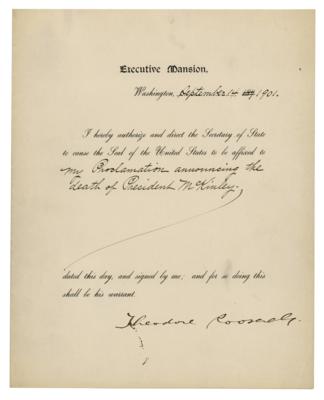 Executive Mansion,
Washington, September 14 1901.
I hereby authorize and direct the Secretary of State
to cause the Seal of the United States to be affixed to
my Proclamation announcing the
death of President McKinley.
dated this day, and signed by me; and for so doing this
shall be his warrant.
Theodore Roosevelt.